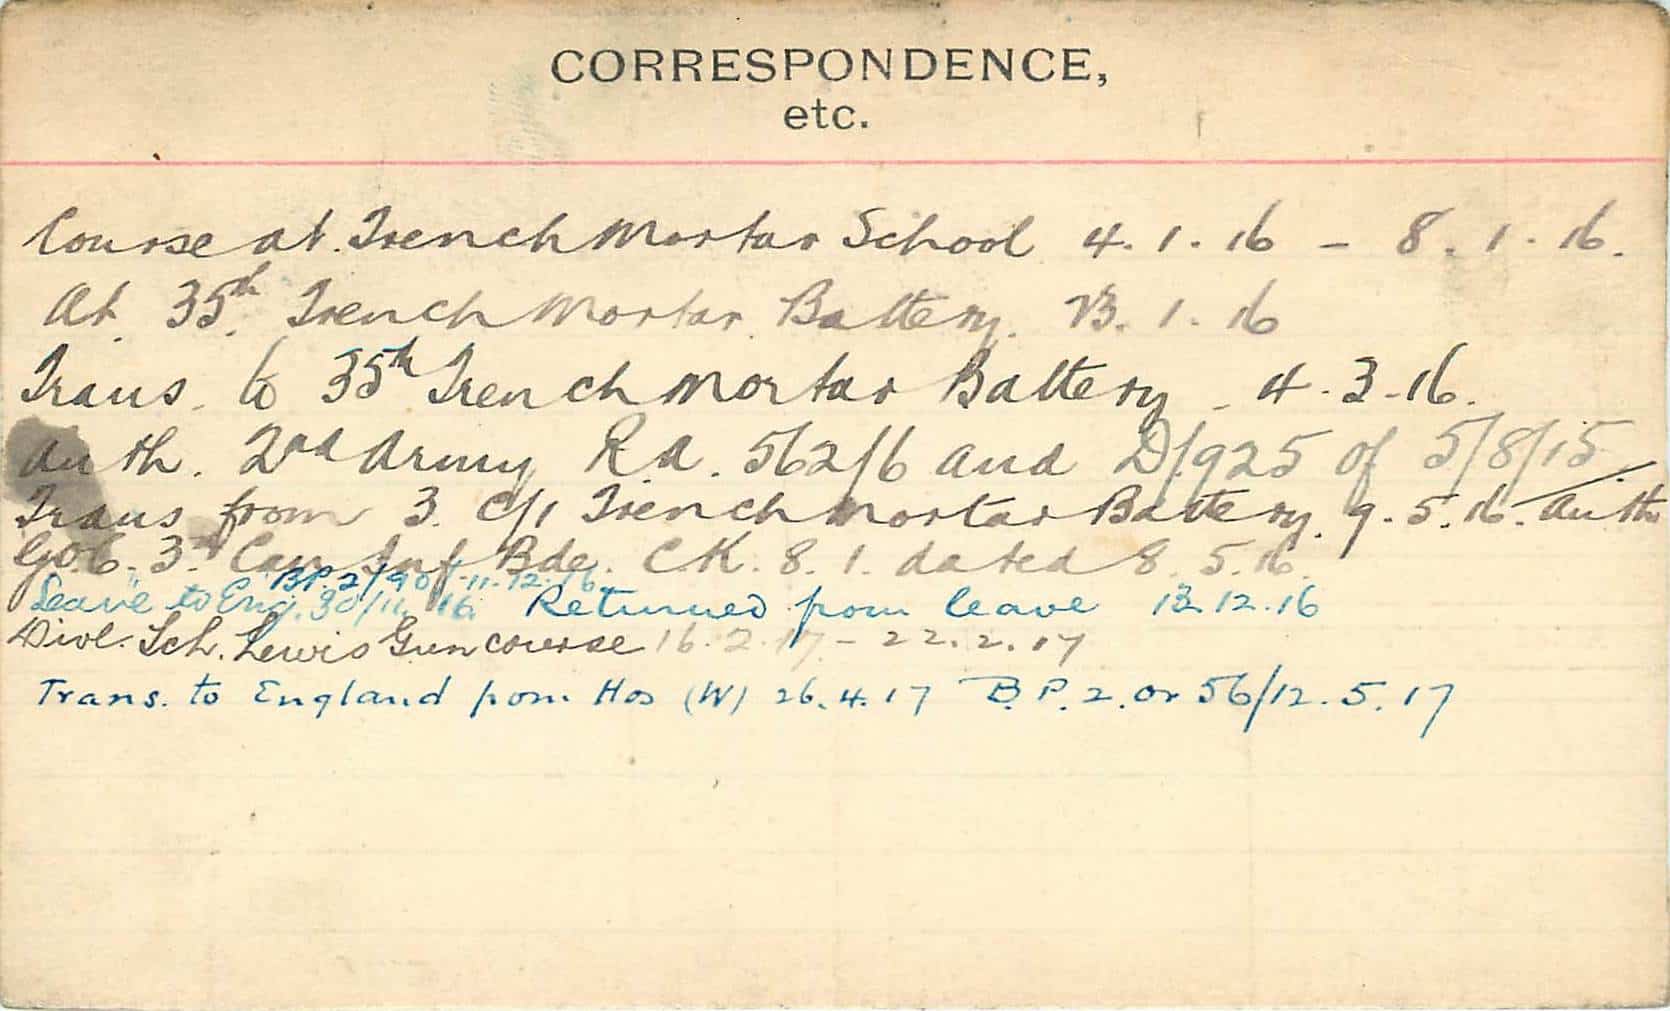 CORRESPONDENCE,
etc.
Course at Trench Mortar School 4.1.16 – 8.1.16.
At 35th Trench Mortar Battery. 1.16
Trans. to 35th Trench Mortar Battery – 4.3.16.
Auth. 2nd Army Rd. 562/6 and D/925 of 5/8/15
Trans from 3. C/1 Trench Mortar Battery. 9.5.16. Auth
GOC. 3rd Can Inf Bde. CK. 8.1. dated 8.5.16.
BP. 2/90/-11-12-16
Leave to Eng. 30/11/16. Returned from leave 13.12.16
Divl. Sch. Lewis Gun course 16.2.17 – 22.2.17
Trans. to England from Hos (W) 26.4.17 B.P.2.Or 56/12.5.17